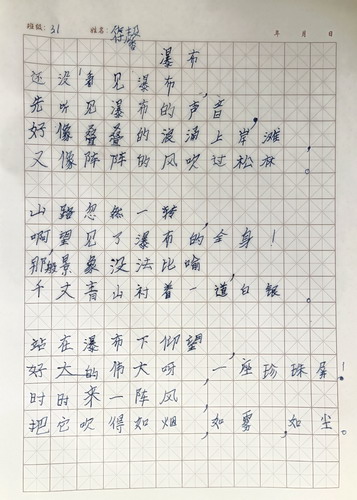 班级: 31 姓名: 年 月 日
瀑布
还没看见瀑布,
先听见瀑布的声音,
好像叠叠的浪涌上岸滩,
又像阵阵的风吹过松林。
山路忽然一转,
啊望见了瀑布的全身!
那般景象没法比喻,
千丈青山衬着一道白银。
站在瀑布下仰望,
好大的伟大呀,一座珍珠屏!
时时来一阵风,
把它吹得如烟,如雾,如尘。